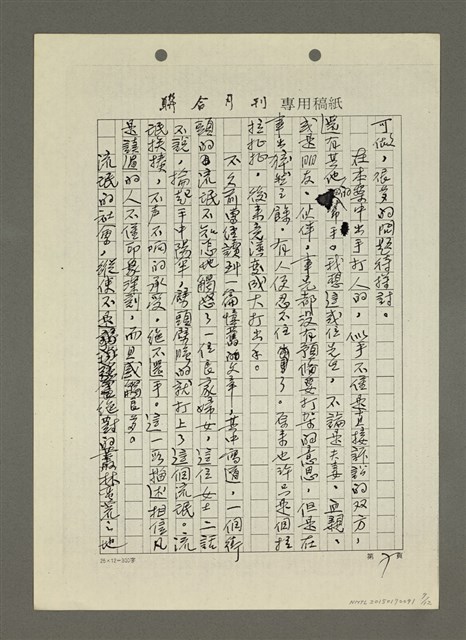 聯合月刊 專用稿紙
可做，很多的問題待探討。
在本案中出手打人的，似乎不僅是直接訴訟的双方，
還有其他的帮手。我想這或位先生，不論是夫妻、血親、
或是朋友、伙伴，事先都沒有預備要打架的意思，但是在
事出猝然之餘，有人便忍不住出手了。原來也許只是個拉
拉扯扯，後來竟演變成大打出手。
不久前曾經讀到一篇懷舊的文章，其中寫道，一個街
頭的流氓不知怎地觸怒了一位良家婦女，這位女士二話
不說，掄起手中陽傘，劈頭劈臉的就打上了這個流氓。流
氓挨揍，不声不响的承受，絕不還手。這一段描述相信凡
是讀過的人不僅印象深刻，而且感嘅良多。
流氓的社會，縱使不是絕對的叢林蠻荒之地
25×12=300字
第 7 頁
9/12
NMTL20150170091